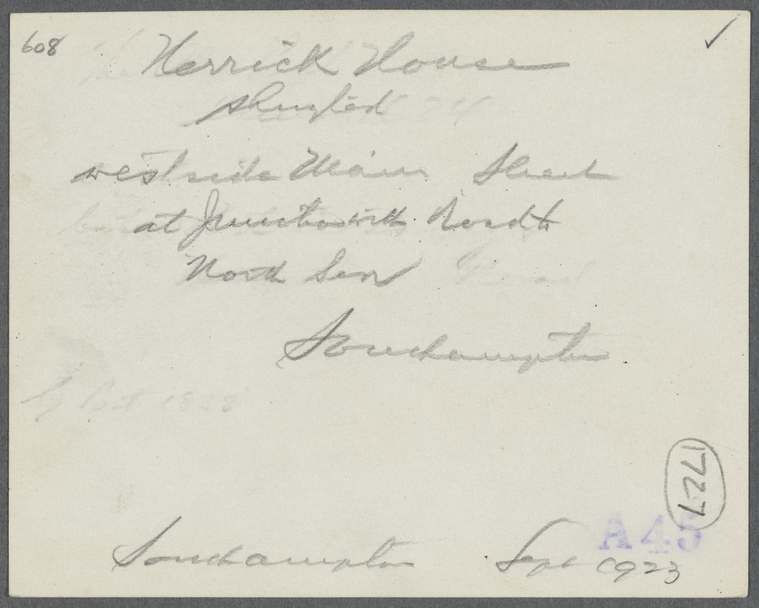 608
Herrick House
shingled
west side Main Street
at Junction with Road to
North Sea
Southampton
1858
1727
A45
Southampton Sept 1923